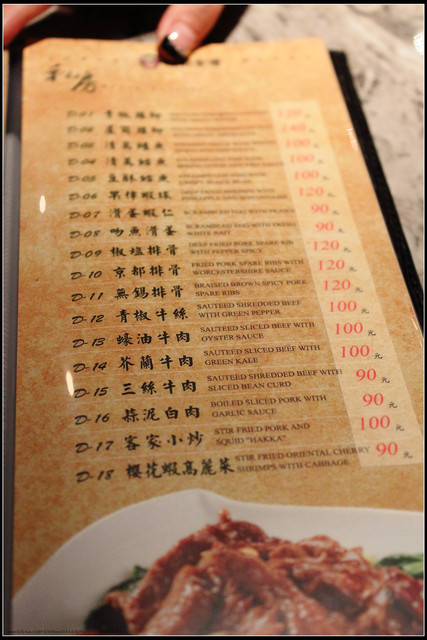 D-01 青椒 120元
D-02 140元
D-03 清蒸鱈魚 100元
D-04 清蒸鱈魚 100元
D-05 豆酥鱈魚 100元
D-06 果律蝦球 120元
D-07 滑蛋蝦仁 SCRAMBLED EGG WITH PRAWN 90元
D-08 吻魚滑蛋 SCRAMBLED EGG WITH FRESH WHITE BAIT 90元
D-09 椒塩排骨 DEEP FRIED PORK SPARE RIB WITH PEPPER SPICY 120元
D-10 京都排骨 FRIED PORK SPARE RIBS WITH WORCESTERSHIRE SAUCE 120元
D-11 無錫排骨 BRAISED BROWN SPICY PORK SPARE RIBS 120元
D-12 青椒牛絲 SAUTEED SHREDDED BEEF WITH GREEN PEPPER 100元
D-13 蠔油牛肉 SAUTEED SLICED BEEF WITH OYSTER SAUCE 100元
D-14 芥蘭牛肉 SAUTEED SLICED BEEF WITH GREEN KALE 100元
D-15 三絲牛肉 SAUTEED SHREDDED BEEF WITH SLICED BEAN CURD 90元
D-16 蒜泥白肉 BOILED SLICED PORK WITH GARLIC SAUCE 90元
D-17 客家小炒 STIR FRIED PORK AND SQUID "HAKKA" 100元
D-18 櫻花蝦高麗菜 STIR FRIED ORIENTAL CHERRY SHRIMPS WITH CABBAGE 90元